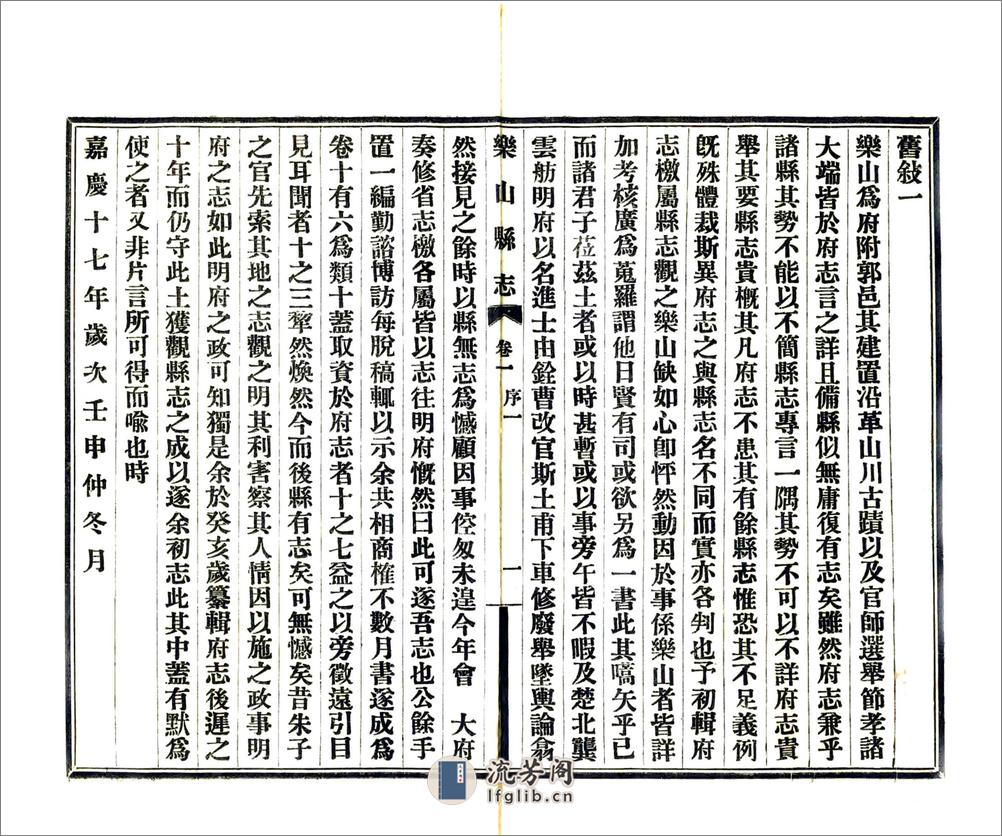 舊敍一
樂山爲府附郭邑其建置沿革山川古蹟以及官師選舉節孝諸
大端皆於府志言之詳且備縣似無庸復有志矣雖然府志兼乎
諸縣其勢不能以不簡縣志專言一隅其勢不可以不詳府志貴
舉其要縣志貴槪其凡府志不患其有餘縣志惟恐其不足義例
旣殊體裁斯異府志之與縣志名不同而實亦各判也予初輯府
志檄屬縣志觀之樂山缺如心卽怦然動因於事係樂山者皆詳
加考核廣爲蒐羅謂他日賢有司或欲另爲一書此其嚆矢乎已
而諸君子莅茲土者或以時甚暫或以事旁午皆不暇及楚北龔
雲舫明府以名進士由銓曹改官斯土甫下車修廢舉墜輿論翕
樂山縣志 卷一 序一 一
然接見之餘時以縣無志爲憾顧因事倥匆未遑今年會 大府
奏修省志檄各屬皆以志往明府慨然曰此可遂吾志也公餘手
置一編勤諮博訪每脫稿輒以示余共相商榷不數月書遂成爲
卷十有六爲類十蓋取資於府志者十之七益之以旁徵遠引目
見耳聞者十之三犂然煥然今而後縣有志矣可無憾矣昔朱子
之官先索其地之志觀之明其利害察其人情因以施之政事明
府之志如此明府之政可知獨是余於癸亥歲纂輯府志後遲之
十年而仍守此土獲觀縣志之成以遂余初志此其中蓋有默爲
使之者又非片言所可得而喩也時
嘉慶十七年歲次壬申仲冬月
流芳阁
lfglib.cn